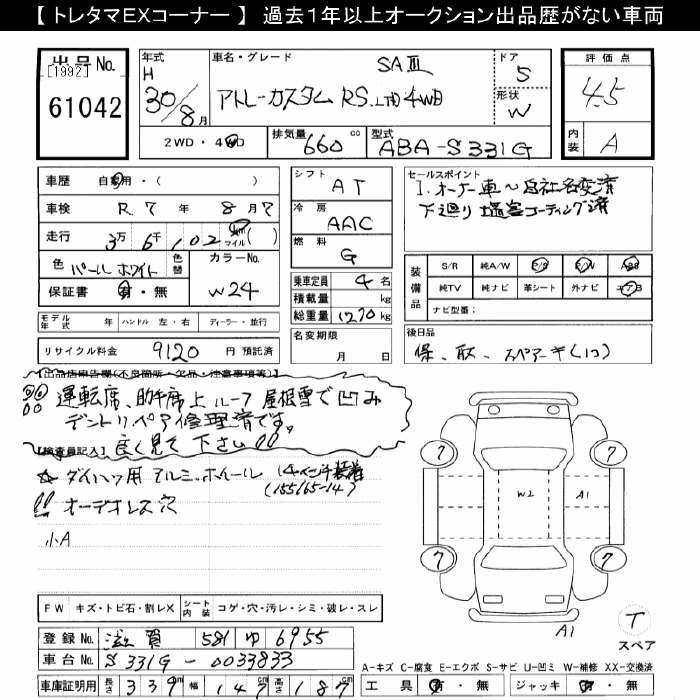 【 トレタマEXコーナー 】 過去１年以上オークション出品歴がない車両
出品No.
[1992]
61042
年式 H 30/8月
車名・グレード SAⅢ
アトレーカスタム RS.LTD 4WD
ドア 5
形状 W
評価点 4.5
内装 A
2WD・4WD
排気量 660 cc
型式 ABA-S331G
車歴 自家用・( )
車検 R. 7 年 8 月 7
走行 3万 6千 102 Km マイル ( )
色 パールホワイト 色替
カラーNo. W24
保証書 有・無
モデル年式 年 ハンドル 左・右 ディーラー・並行
リサイクル料金 9120 円 預託済
シフト AT
冷房 AAC
燃料 G
乗車定員 4 名
積載量 kg
総重量 1270 kg
名変期限
月 日
セールスポイント
1.オーナー車〜自社名変済
下廻り塩害コーティング済
装備品 S/R 純A/W P/S P/W ABS
純TV 純ナビ 革シート 外ナビ エアB
ナビ型番:
後日品
保、取、スペアーキ(1コ)
【出品店申告欄(不良箇所・欠品・注意事項等)】
運転席、助手席上ルーフ 屋根雪で凹み
デントリペア修理済です。
良く見て下さい!!
【検査員記入】
☆ ダイハツ用 アルミ.ホイール 14インチ装着
(155/65-14)
!! オーディオレス穴
小A
FW キズ・トビ石・割レX シート内装 コゲ・穴・汚レ・シミ・破レ・スレ
登録No. 滋賀 581 ゆ 6955
車台No. S331G-0033833
車庫証明用 長さ 339 幅 147 高さ 187
7
7
W2
A1
7
7
A1
T
スペア
A-キズ C-腐食 E-エクボ S-サビ U-凹ミ W-補修 XX-交換済
工具 有・無 ジャッキ 有・無